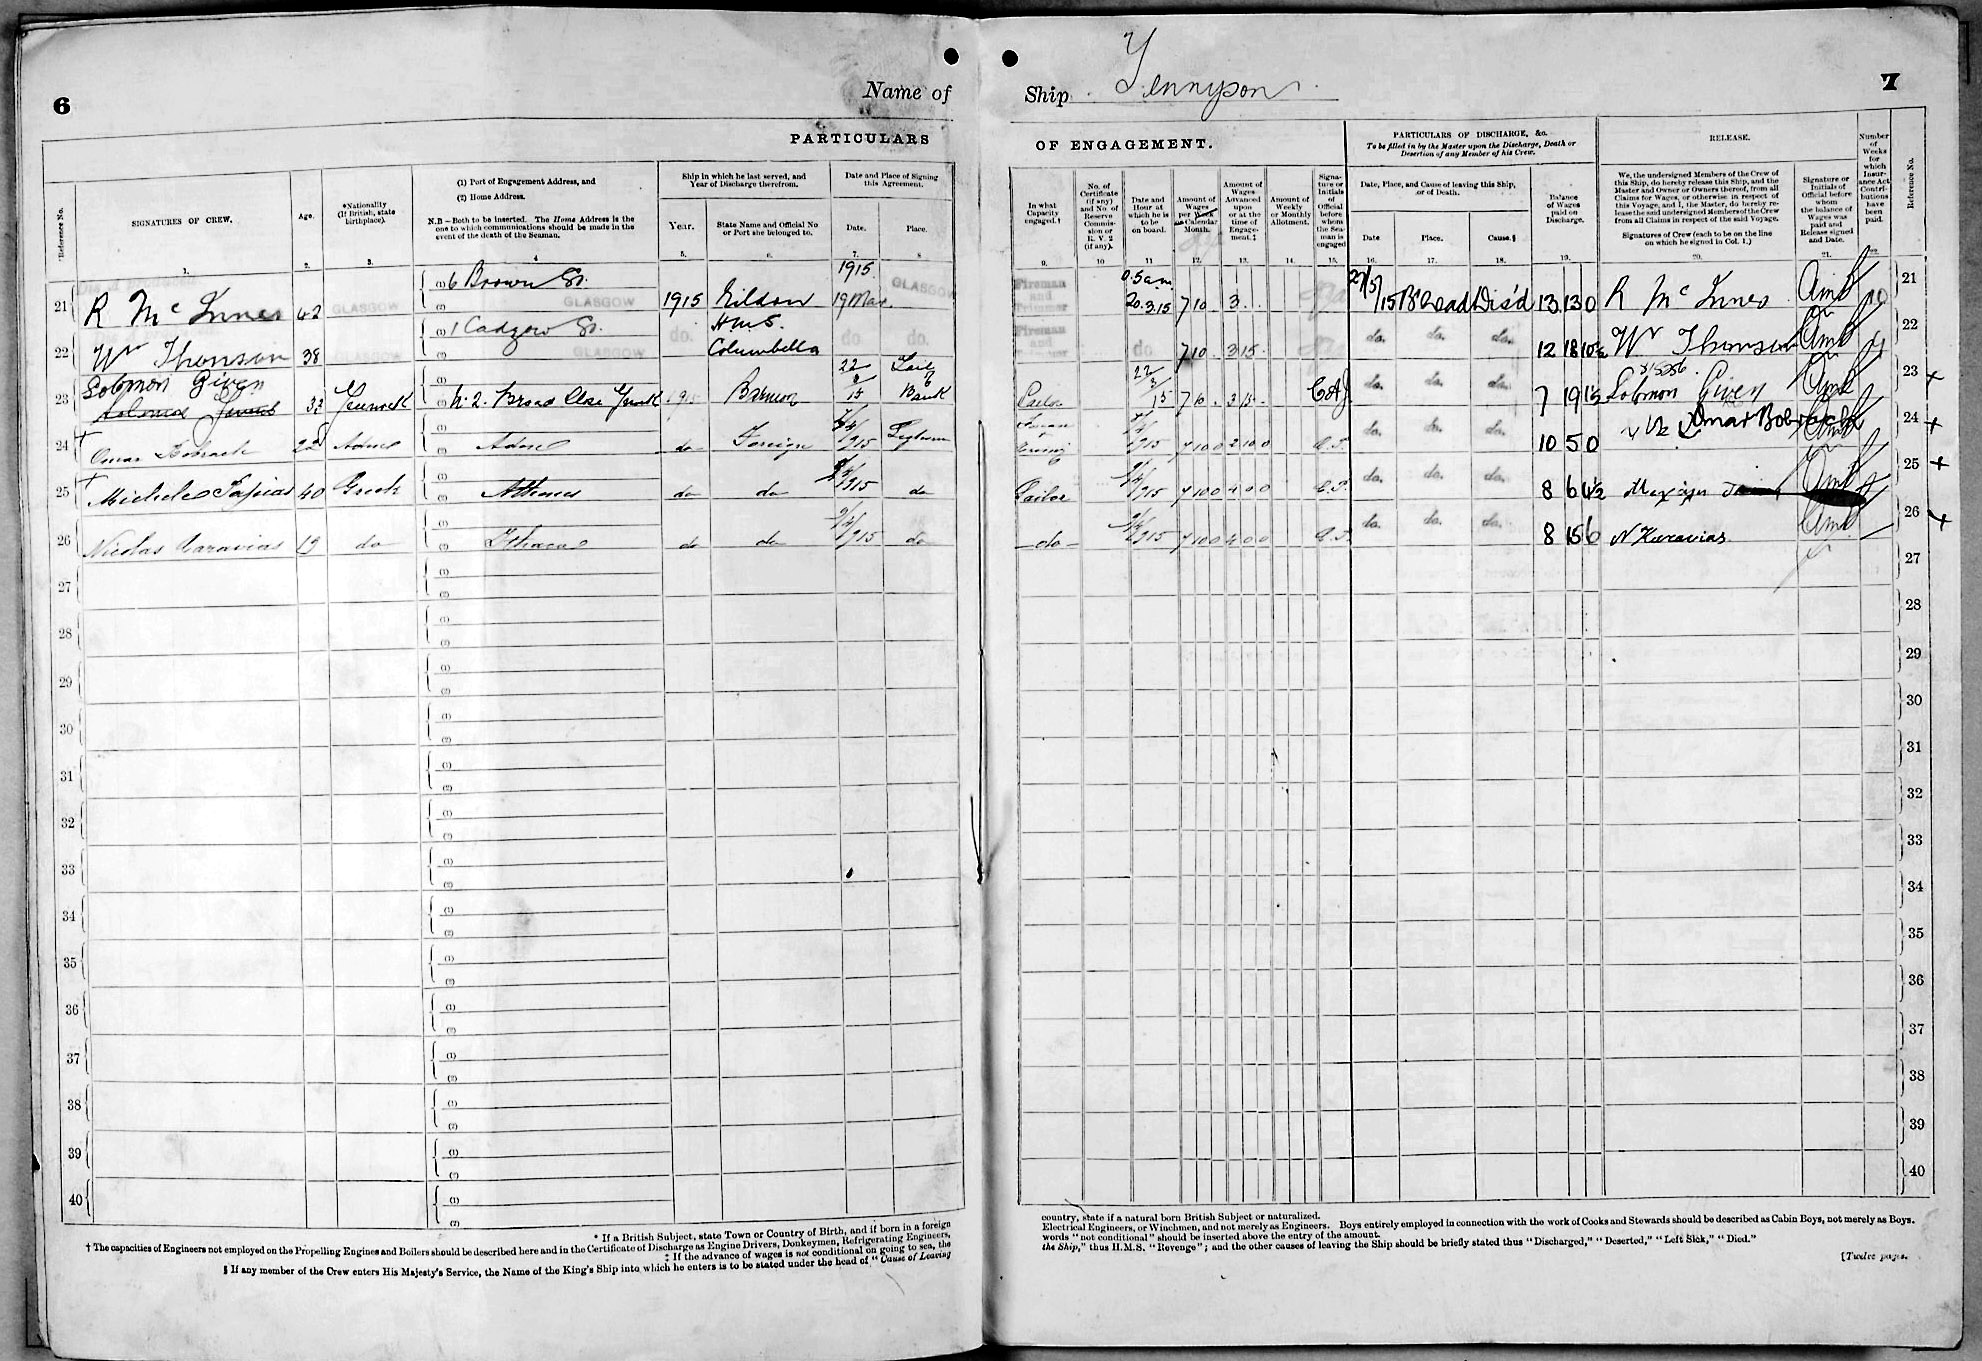 6
Name of
Ship Tennyson
7
PARTICULARS
OF ENGAGEMENT.
PARTICULARS OF DISCHARGE, &c.
To be filled in by the Master upon the Discharge, Death or
Desertion of any Member of his Crew.
RELEASE.
Number
of
Weeks
for
which
Insur-
ance Act
Contri-
butions
have
been
paid.
Reference No.
Reference No.
SIGNATURES OF CREW.
Age.
*Nationality
(If British, state
birthplace).
(1) Port of Engagement Address, and
(2) Home Address.
N.B—Both to be inserted. The Home Address is the
one to which communications should be made in the
event of the death of the Seaman.
Ship in which he last served, and
Year of Discharge therefrom.
Year.
State Name and Official No
or Port she belonged to.
Date and Place of Signing
this Agreement.
Date.
Place.
In what
Capacity
engaged.†
No. of
Certificate
(if any)
and No. of
Reserve
Commis-
sion or
R. V. 2
(if any).
Date and
Hour at
which he is
to be
on board.
Amount of
Wages
per Week
or Calendar
Month.
Amount of
Wages
Advanced
upon
or at the
time of
Engage-
ment.‡
Amount of
Weekly
or Monthly
Allotment.
Signa-
ture or
Initials
of
Official
before
whom
the Sea-
man is
engaged
Date, Place, and Cause of leaving this Ship,
or of Death.
Date.
Place.
Cause.§
Balance
of Wages
paid on
Discharge.
We, the undersigned Members of the Crew of
this Ship, do hereby release this Ship, and the
Master and Owner or Owners thereof, from all
Claims for Wages, or otherwise in respect of
this Voyage, and I, the Master, do hereby re-
lease the said undersigned Members of the Crew
from all Claims in respect of the said Voyage.
Signatures of Crew (each to be on the line
on which he signed in Col. 1.)
Signature or
Initials of
Official before
whom
the balance of
Wages was
paid and
Release signed
and Date.
1. 2. 3. 4 5. 6. 7. 8
9. 10 11 12. 13. 14. 15. 16. 17. 18. 19. 20. 21.
21 R McInnes 42 GLASGOW (1) 6 Brown St. GLASGOW 1915 Gildon 1915 19 Mar GLASGOW
Fireman and Trimmer 20.3.15 7 10 3 27/5/15 B'head Dis'd 13 13 0 R McInnes 21
22 Wm Thomson 38 GLASGOW (1) 1 Cadzow St. GLASGOW do. HMS. Columbella do. do.
Fireman and Trimmer do 7 10 3 15 do. do. do. 12 18 10½ Wm Thomson 22
Solomon Given
23 33 Greenock Barnum 22/3/15 Bank
22/3/15 do. do. do. 7 19 1½ Solomon Given 23
24 Omar Bobrach 22 Aden Aden do Foreign 1915
1915 7 10 0 2 10 0 do. do. do. 10 5 0 Omar Bobrach 24
25 40 Greek Athens do do 1915 do
Sailor 1915 7 10 0 4 0 0 do. do. do. 8 6 4½ 25
26 Nicolas Caravias 19 do Ithaca do do 1915 do
do 1915 7 10 0 4 0 0 do. do. do. 8 15 6 N Karavias 26
27 27
28 28
29 29
30 30
31 31
32 32
33 33
34 34
35 35
36 36
37 37
38 38
39 39
40 40
* If a British Subject, state Town or Country of Birth, and if born in a foreign
country, state if a natural born British Subject or naturalized.
† The capacities of Engineers not employed on the Propelling Engines and Boilers should be described here and in the Certificate of Discharge as Engine Drivers, Donkeymen, Refrigerating Engineers,
Electrical Engineers, or Winchmen, and not merely as Engineers. Boys entirely employed in connection with the work of Cooks and Stewards should be described as Cabin Boys, not merely as Boys.
‡ If the advance of wages is not conditional on going to sea, the
words "not conditional" should be inserted above the entry of the amount.
§ If any member of the Crew enters His Majesty's Service, the Name of the King's Ship into which he enters is to be stated under the head of "Cause of Leaving
the Ship," thus H.M.S. "Revenge"; and the other causes of leaving the Ship should be briefly stated thus "Discharged," "Deserted," "Left Sick," "Died."
[Twelve pages.